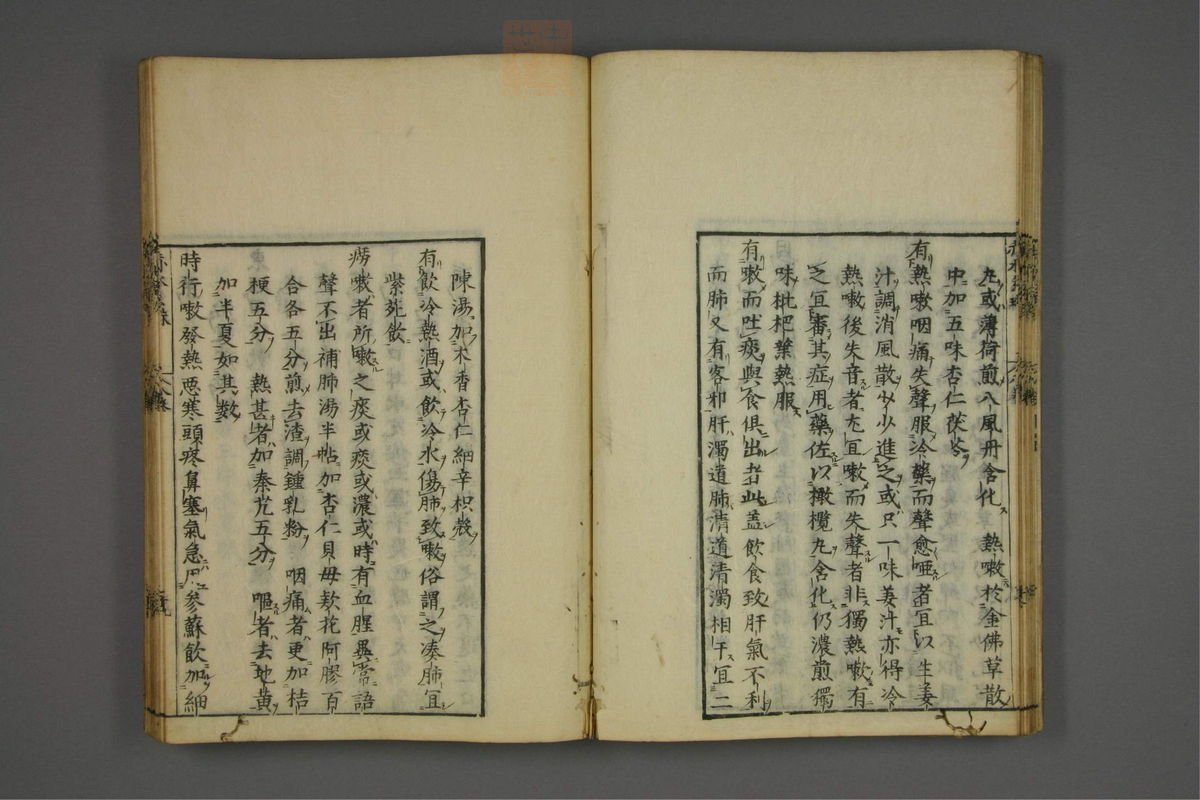 丸或薄荷煎八風丹含化　熱嗽於金佛草散
中加五味杏仁茯苓
有熱嗽咽痛失聲服冷藥而聲愈啞者宜以生姜
汁調消風散少少進之或只一味姜汁亦得冷
熱嗽後失音者尤宜嗽而失聲者非獨熱嗽有
之宜審其症用藥佐以橄欖丸含化仍濃煎獨
味枇杷葉熱服
有嗽而吐痰與食俱出者此盖飲食致肝氣不利
而肺又有客邪肝濁道肺清道清濁相干宜二
陳湯加木香杏仁細辛枳殼
有飲冷熱酒或飲冷水傷肺致嗽俗謂之凑肺宜
紫菀飲
癆嗽者所嗽之痰或痰或濃或時有血腥異常語
聲不出補肺湯半帖加杏仁貝母款花阿膠百
合各五分煎去渣調鍾乳粉　咽痛者更加桔
梗五分　熱甚者加秦艽五分　嘔者去地黄
加半夏如其數
時行嗽發熱惡寒頭疼鼻塞氣急用參蘇飲加細